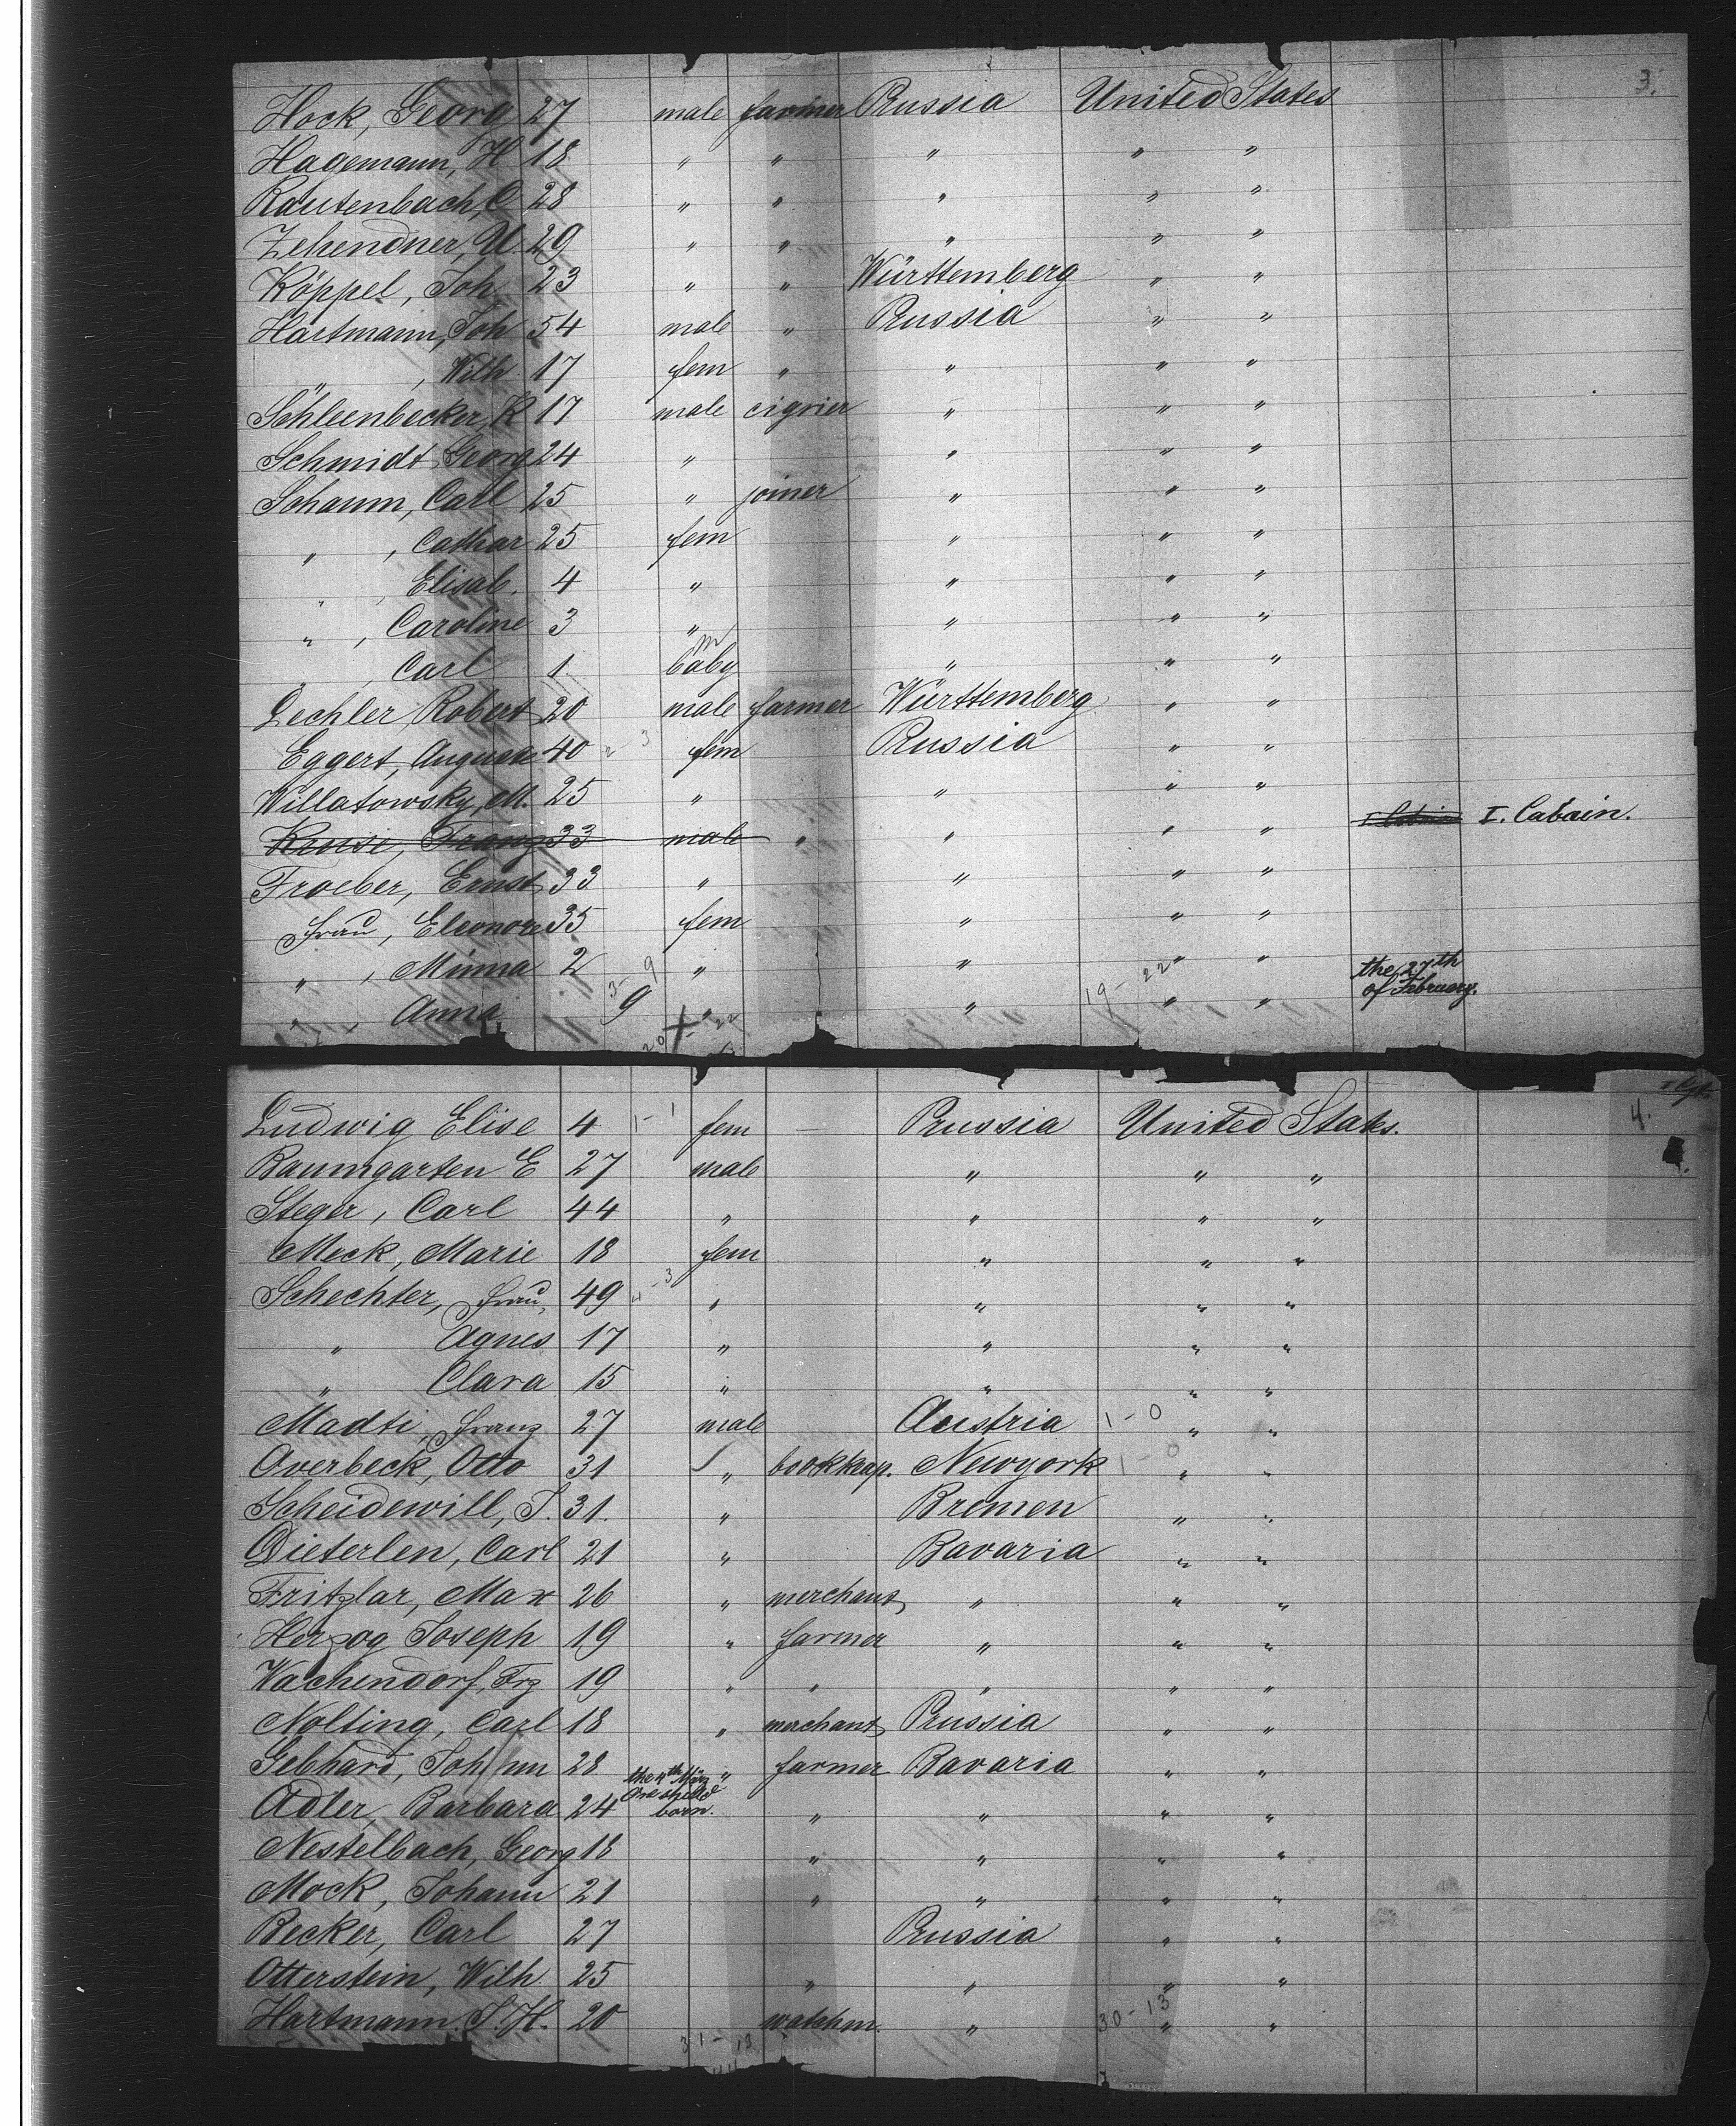 3.
Hock, Georg 27 male farmer Prussia United States
Hagemann, H 18 " " " " "
Rautenbach, C. 28 " " " " "
Zehendner, U. 29 " " " " "
Köppel, Joh 23 " " Württemberg " "
Hartmann, Joh 54 male " Prussia " "
" , Wilh 17 fem " " " "
Schleenbecker, K 17 male cigrier " " "
Schmidt Georg 24 " " " "
Schaum, Carl 25 " joiner " " "
" , Cathar 25 fem " " "
" , Elisab. 4 " " " "
" , Caroline 3 " " " "
" , Carl 1 baby m " " "
Lechler, Robert 20 male farmer Württemberg " "
Eggert, Auguste 40 2 3 fem Prussia " "
Willatowsky, M. 25 " " " "
Franz 33 male " " " " I. Cabain.
Froeber, Ernst 33 " " " "
Frau, Eleonore 35 fem " " "
" , Minna 2 3-9 " " 19-22 " " the 27th of February.
" , Anna 9 " " " "
20 - 22
4.
Ludwig Elise 4 1-1 fem — Prussia United States.
Baumgarten E 27 male " " "
Steger, Carl 44 " " " "
Meck, Marie 18 fem " " "
Schechter, Frau, 49 4-3 " " " "
" Agnes 17 " " " "
" Clara 15 " " " "
Madti, Franz 27 male Austria 1-0 " "
Overbeck, Otto 31 " bookkeep. Newyork 1-0 " "
Scheidewill, J. 31. " Bremen " "
Dieterlen, Carl 21 " Bavaria " "
Fritzlar, Max 26 " merchant " " "
Herzog Joseph 19 " farmer " " "
Wachendorf, Frz 19 " " " " "
Nolting, Carl 18 " merchant Prussia " "
Gebhard, Johann 28 " farmer Bavaria " "
Adler, Barbara 24 the 4th März One child born. " " " "
Nestelbach, Georg 18 " " " "
Mock, Johann 21 " " " "
Becker, Carl 27 Prussia " "
Otterstein, Wilh. 25 " " " "
Hartmann. J. H. 20 watchm. " 30-13 " "
31-13